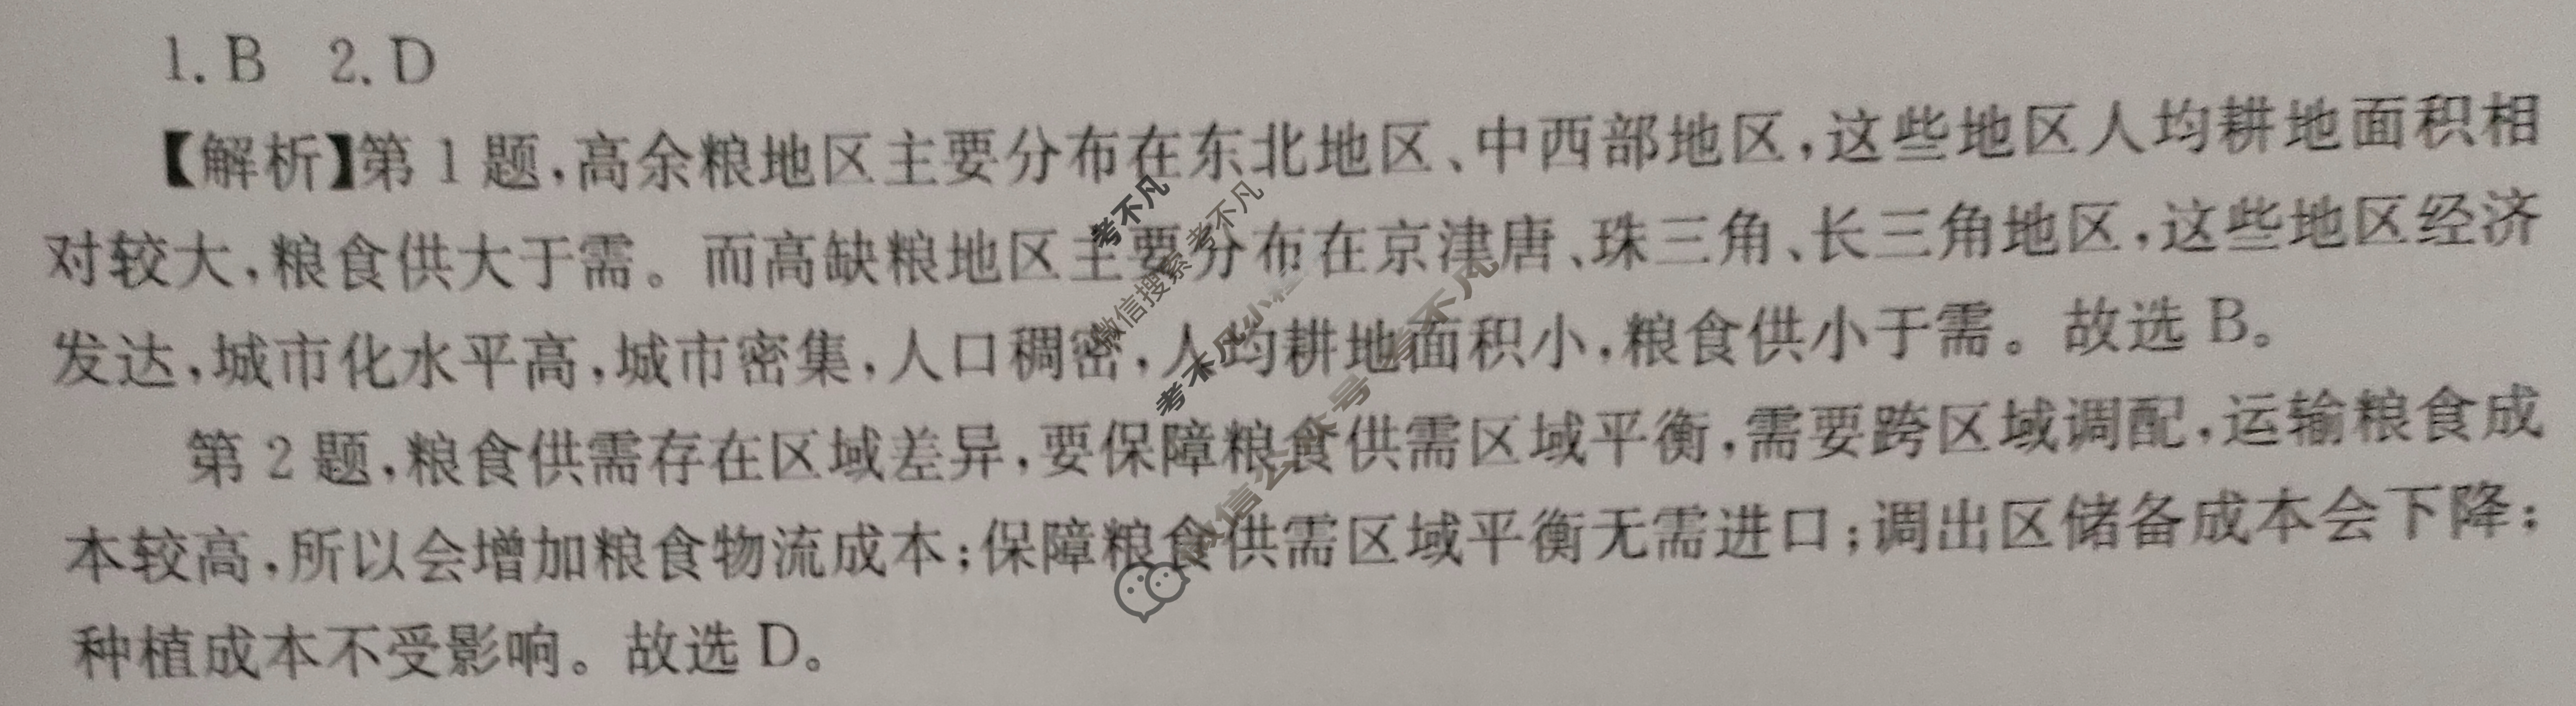 1. B 2. D
【解析】第 1 题,高余粮地区主要分布在东北地区、中西部地区,这些地区人均耕地面积相
对较大,粮食供大于需。而高缺粮地区主要分布在京津唐、珠三角、长三角地区,这些地区经济
发达,城市化水平高,城市密集,人口稠密,人均耕地面积小,粮食供小于需。故选 B。
第 2 题,粮食供需存在区域差异,要保障粮食供需区域平衡,需要跨区域调配,运输粮食成
本较高,所以会增加粮食物流成本;保障粮食供需区域平衡无需进口;调出区储备成本会下降;
种植成本不受影响。故选 D。
考不凡
微信搜索 考不凡
考不凡小程
微信公众号 考不凡